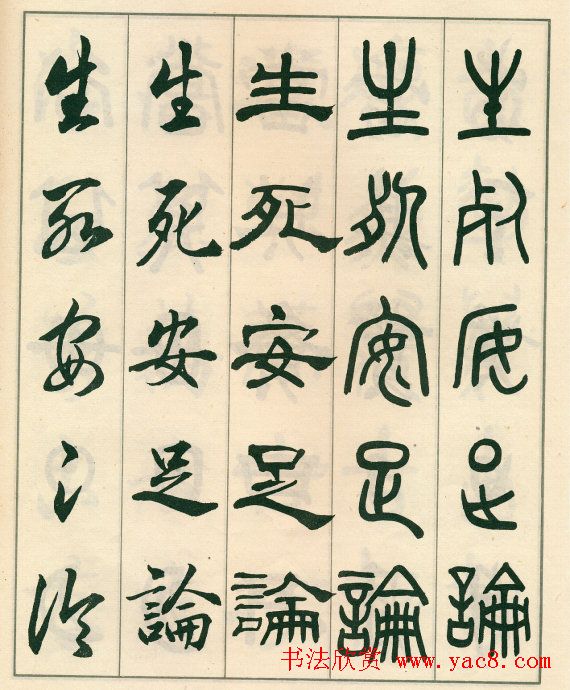 生死安足論
生死安足論
生死安足論
生死安足論
生死安足論
书法欣赏 www.yac8.com